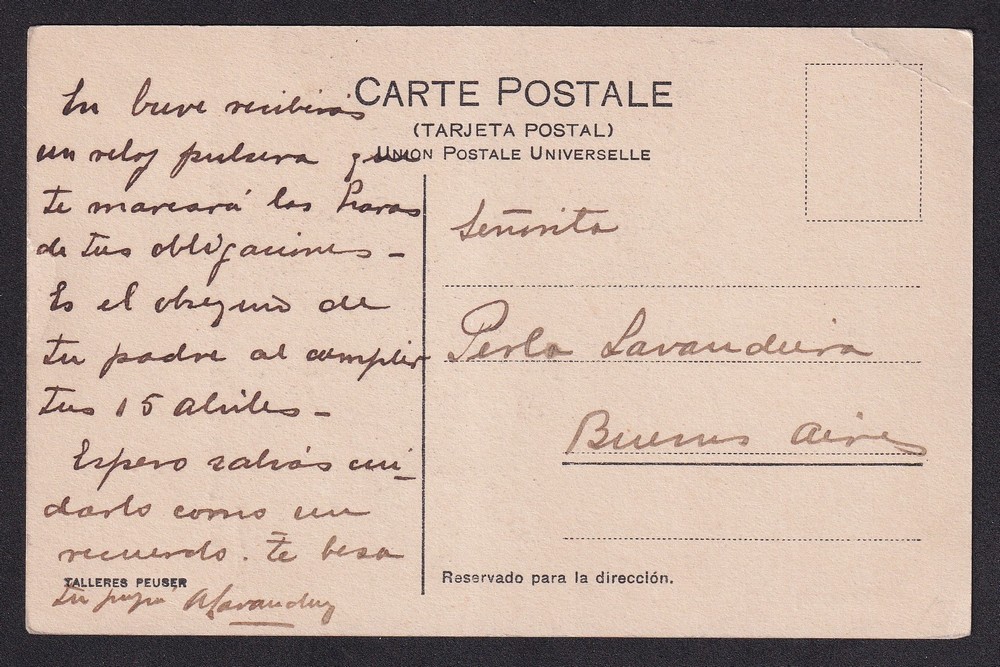 En breve recibirás
un reloj pulsera que
te marcará las horas
de tus obligaciones –
Es el obsequio de
tu padre al cumplir
tus 15 abriles –
Espero sabrás cui-
darlo como un
recuerdo. Te besa
tu papá
CARTE POSTALE
(TARJETA POSTAL)
UNION POSTALE UNIVERSELLE
Señorita
Perla Lavandeira
Buenos Aires
TALLERES PEUSER
Reservado para la dirección.